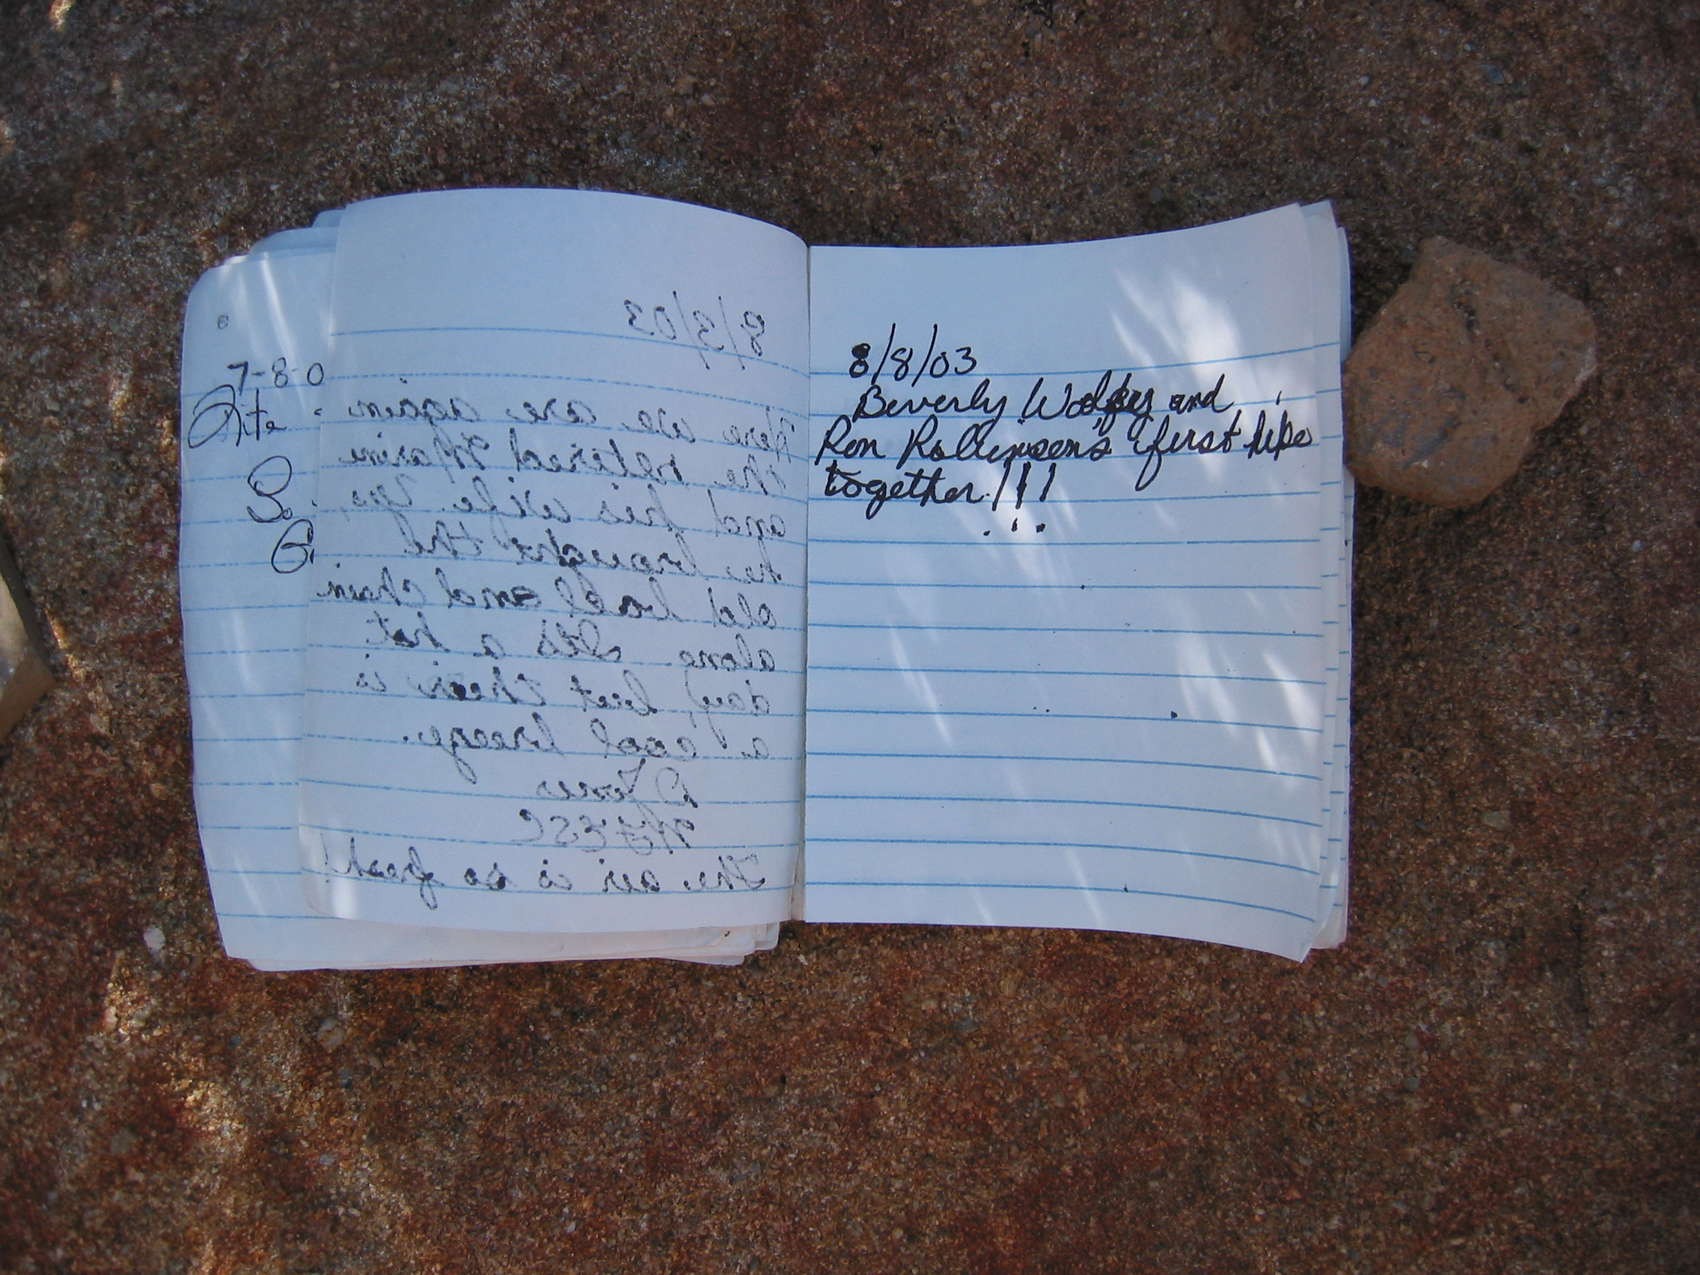 7-8-0
8/3/03
Here we are again
the retired Marine
and his wife. Yes,
he brought the
old ball and chain
along. It's a hot
day, but their is
a cool breeze.
D Jones
The air is so fresh!
8/8/03
Beverly and
Ron Rollinson's first hike
together!!!